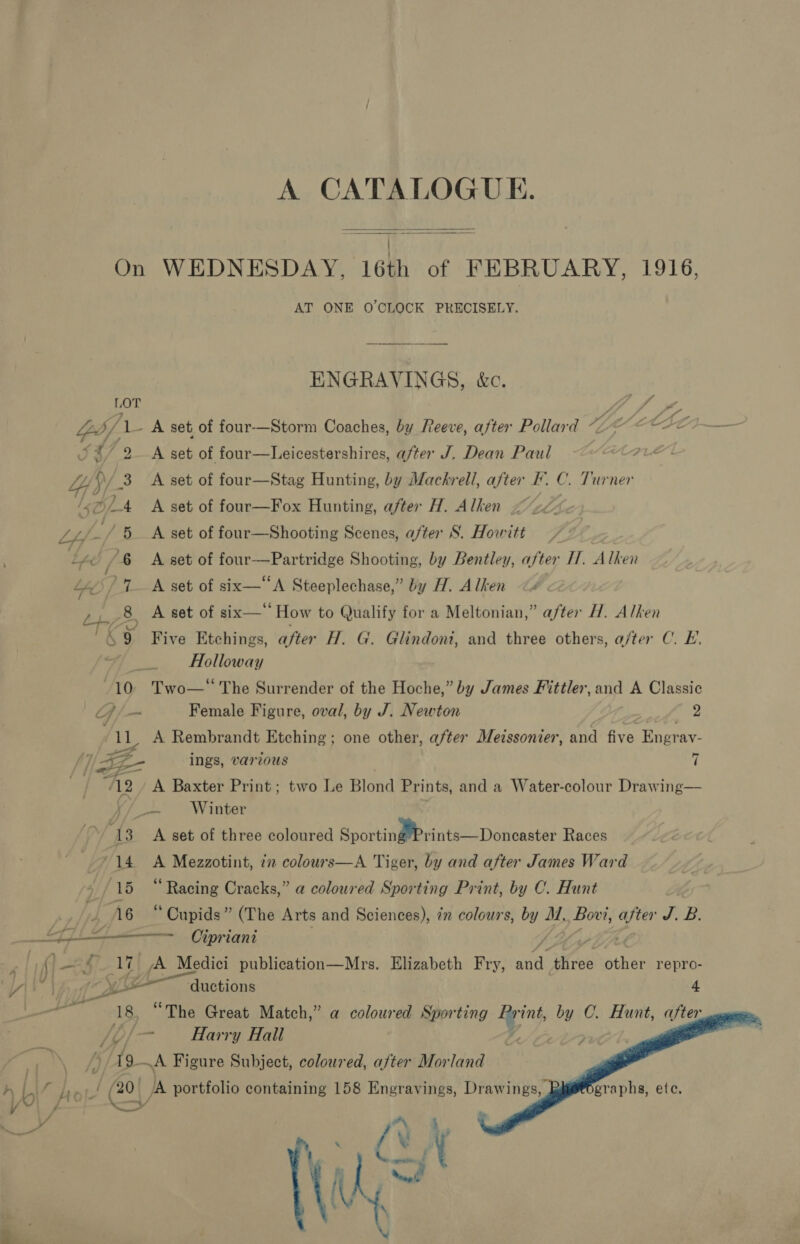 A CATALOGUE.
On WEDNESDAY, 16th of FEBRUARY, 1916,
AT ONE O'CLOCK PRECISELY.
ENGRAVINGS, &c.
LOT
1 A set of four—Storm Coaches, by Reeve, after Pollard
2 A set of four—Leicestershires, after J. Dean Paul
3 A set of four—Stag Hunting, by Mackrell, after F. C. Turner
4 A set of four—Fox Hunting, after H. Alken
5 A set of four—Shooting Scenes, after S. Howitt
6 A set of four—Partridge Shooting, by Bentley, after H. Alken
7 A set of six—“A Steeplechase,” by H. Alken
8 A set of six—“How to Qualify for a Meltonian,” after H. Alken
9 Five Etchings, after H. G. Glindoni, and three others, after C. E.
Holloway
10 Two—“The Surrender of the Hoche,” by James Fittler, and A Classic
Female Figure, oval, by J. Newton 2
11 A Rembrandt Etching; one other, after Meissonier, and five Engrav-
ings, various 7
12 A Baxter Print; two Le Blond Prints, and a Water-colour Drawing—
Winter
13 A set of three coloured Sporting Prints—Doncaster Races
14 A Mezzotint, in colours—A Tiger, by and after James Ward
15 “Racing Cracks,” a coloured Sporting Print, by C. Hunt
16 “Cupids” (The Arts and Sciences), in colours, by M. Bovi, after J. B.
Cipriani
17 A Medici publication—Mrs. Elizabeth Fry, and three other repro-
ductions 4
18 “The Great Match,” a coloured Sporting Print, by C. Hunt, after
Harry Hall
19 A Figure Subject, coloured, after Morland
20 A portfolio containing 158 Engravings, Drawings, Photographs, etc.